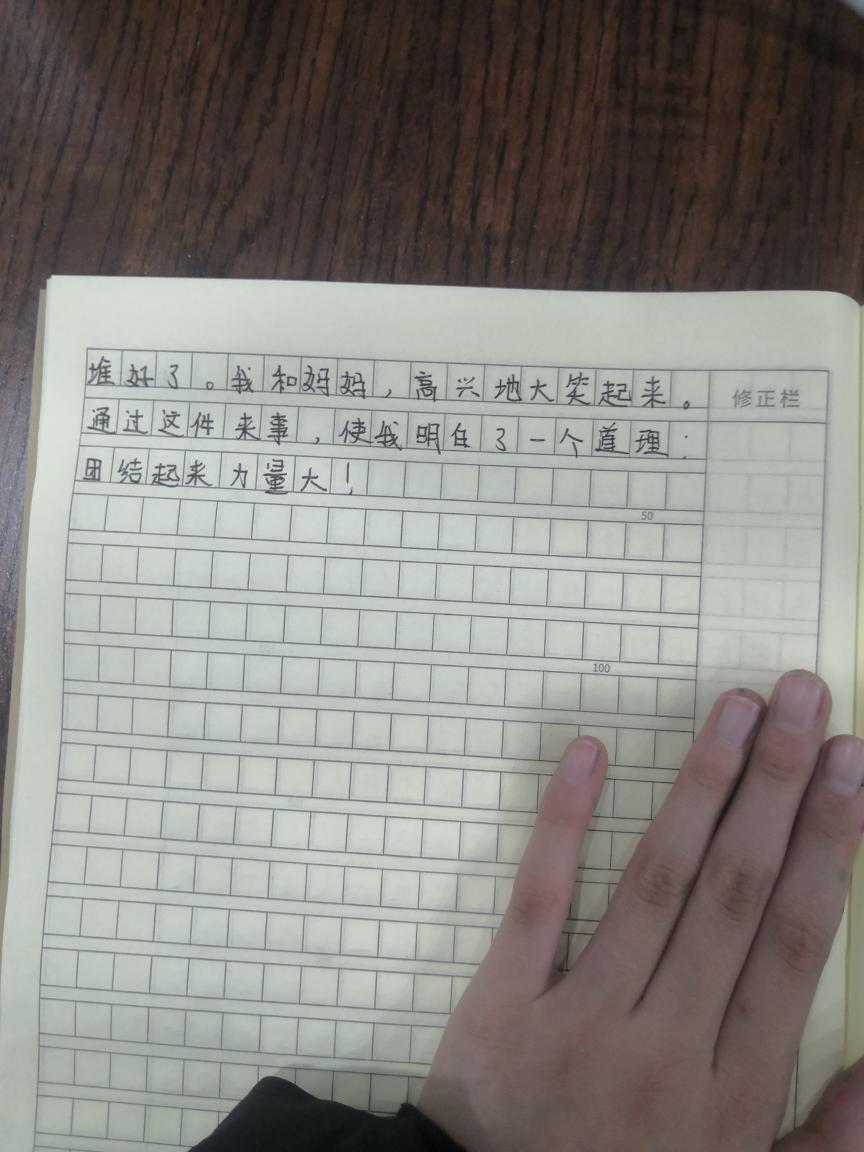 堆好了。我和妈妈，高兴地大笑起来。
修正栏
通过这件来事，使我明白了一个道理：
团结起来力量大！
50
100